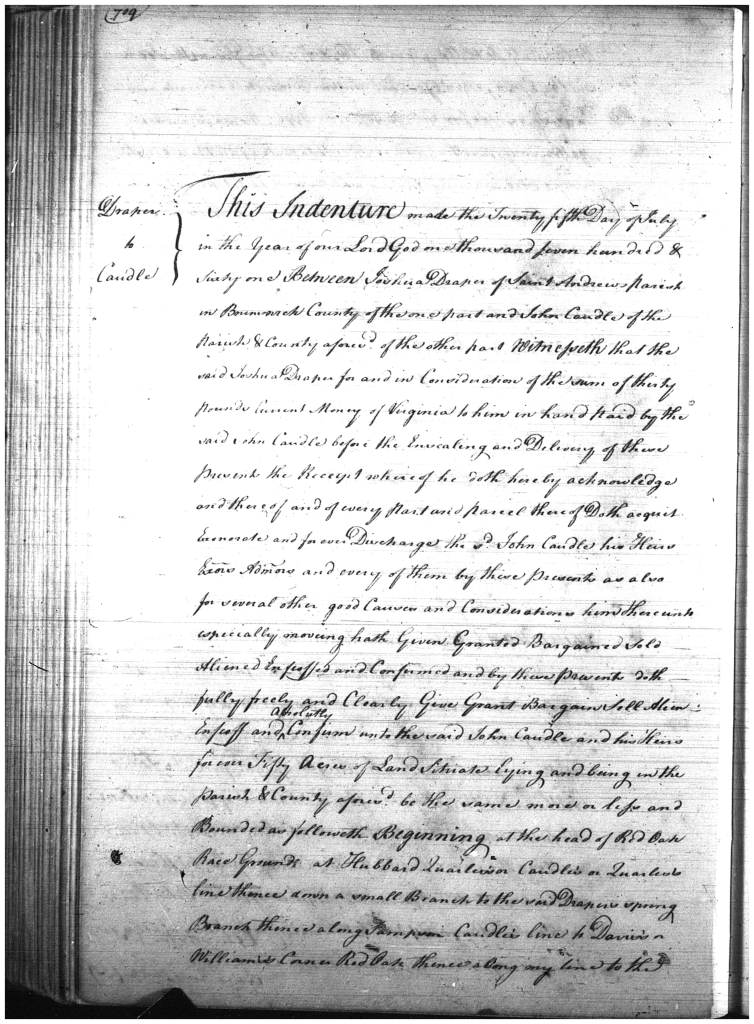 709
Draper
to
Caudle
This Indenture made the Twenty fifth Day of July
in the Year of our Lord God one thousand seven hundred &
Sixty one Between Joshua Draper of Saint Andrews Parish
in Brunswick County of the one part and John Caudle of the
Parish & County afores'd of the other part Witnesseth that the
said Joshua Draper for and in Consideration of the sum of thirty
pounds Current Money of Virginia to him in hand Paid by the
said John Caudle before the Ensealing and Delivery of these
Present the Receipt whereof he doth hereby acknowledge
and thereof and of every Part and Parcel thereof Doth acquit
Exonorate and forever Discharge the s'd John Caudle his Heirs
Exors Admors and every of them by these Presents as also
for several other good Causes and Considerations him thereunto
especially moving hath Given Granted Bargained Sold
Aliened Enfeoffed and Confirmed and by these Present doth
fully freely and Clearly Give Grant Bargain Sell Alien
absolutly
Enfeoff and Confirm unto the said John Caudle and his Heirs
forever Fifty Acres of Land Situate Lying and being in the
Parish & County afores'd be the same more or less and
Bounded as followeth Beginning at the head of Red Oak
Race Grounds at Hubbard Quarles's or Caudle's or Quarles's
line thence down a small Branch to the said Drapers spring
Branch thence along Sampson Caudles line to Davis's or
Williams's Corner Red Oak thence along my line to the